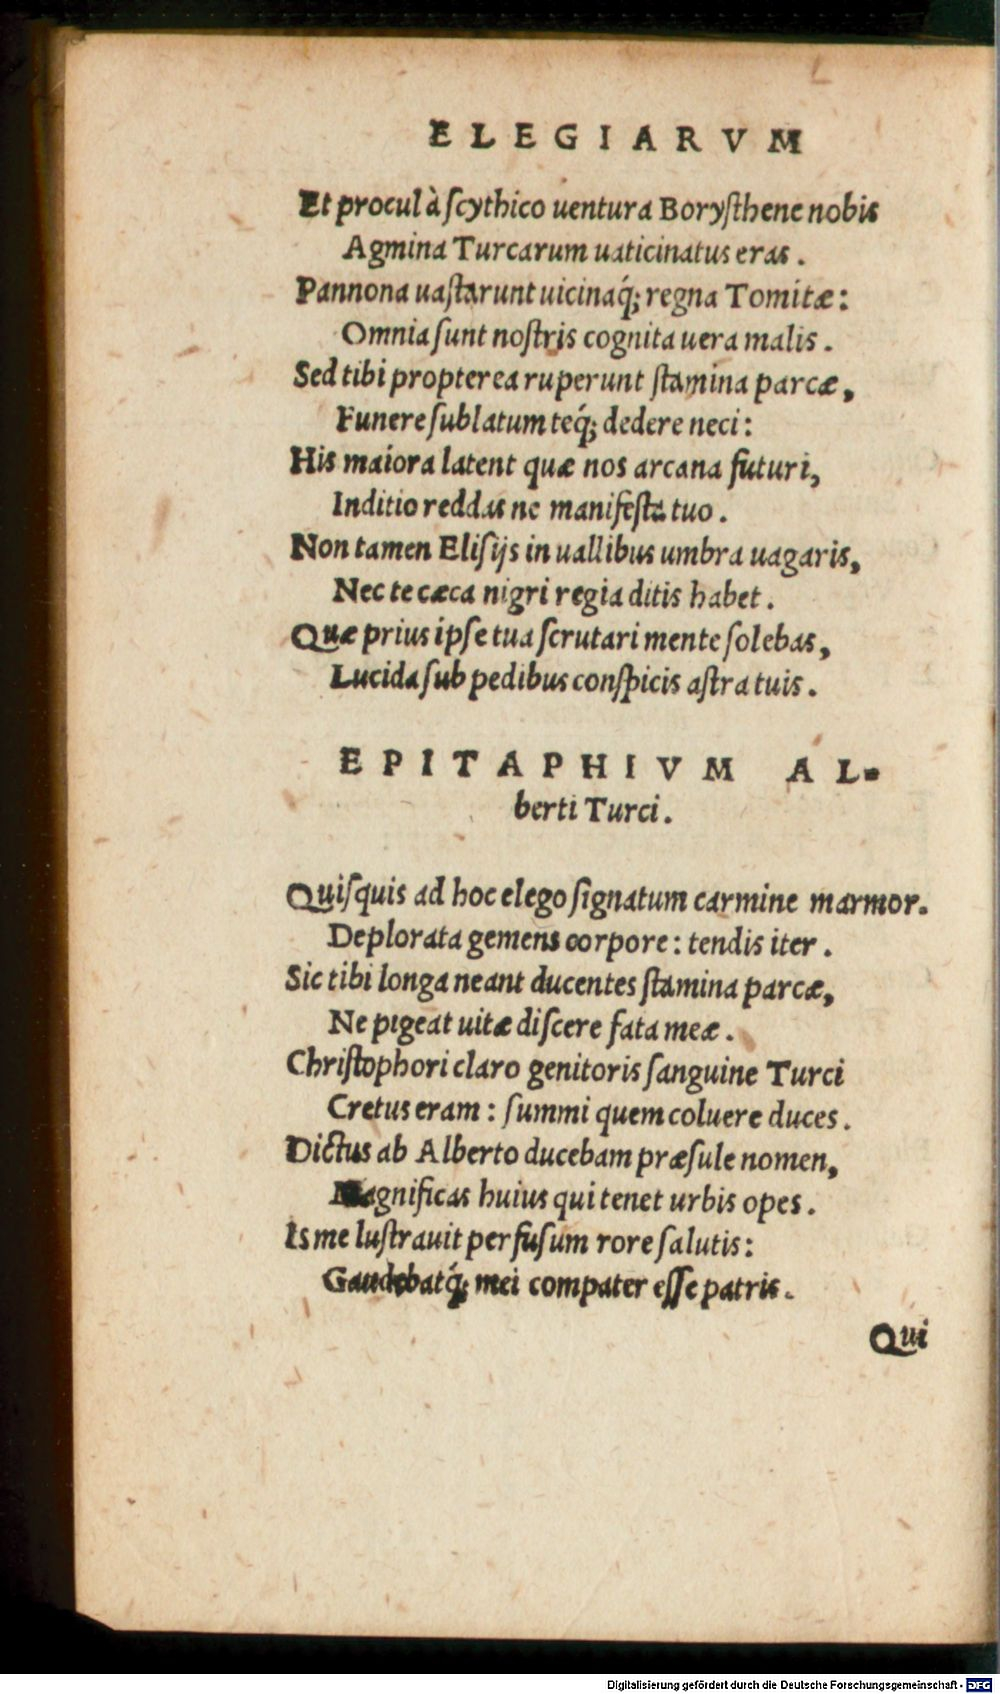 ELEGIARVM
Et procul à ſcythico uentura Boryſthene nobis
Agmina Turcarum uaticinatus eras.
Pannona uaſtarunt uicinaq́; regna Tomitæ:
Omnia ſunt noſtris cognita uera malis.
Sed tibi propterea ruperunt ſtamina parcæ,
Funere ſublatum teq́; dedere neci:
His maiora latent quæ nos arcana futuri,
Inditio reddas ne manifeſta tuo.
Non tamen Eliſijs in uallibus umbra uagaris,
Nec te cæca nigri regia ditis habet.
Quæ prius ipſe tua ſcrutari mente ſolebas,
Lucida ſub pedibus conſpicis aſtra tuis.
EPITAPHIVM AL-
berti Turci.
Quiſquis ad hoc elego ſignatum carmine marmor.
Deplorata gemens corpore: tendis iter.
Sic tibi longa neant ducentes ſtamina parcæ,
Ne pigeat uitæ diſcere fata meæ.
Chriſtophori claro genitoris ſanguine Turci
Cretus eram: ſummi quem coluere duces.
Dictus ab Alberto ducebam præſule nomen,
Magnificas huius qui tenet urbis opes.
Is me luſtrauit perfuſum rore ſalutis:
Gaudebatq́; mei compater eſſe patris.
Qui
Digitalisierung gefördert durch die Deutsche Forschungsgemeinschaft - DFG